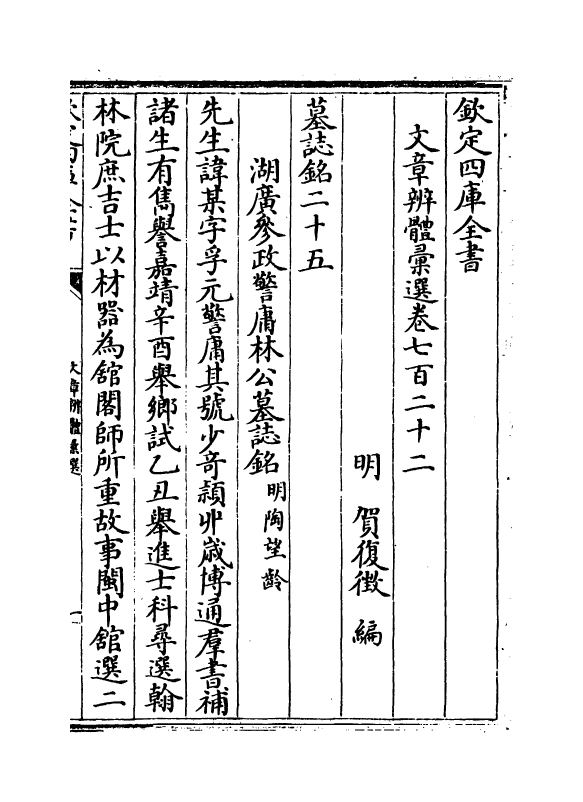 欽定四庫全書
文章辨體彙選卷七百二十二
明 賀復徵 編
墓誌銘二十五
湖廣參政警庸林公墓誌銘 明陶望齡
先生諱某字孚元警庸其號少竒頴丱歳博通羣書補
諸生有雋譽嘉靖辛酉舉鄉試乙丑舉進士科尋選翰
林院庶吉士以材器為舘閣師所重故事閩中舘選二
文章辨體彙選